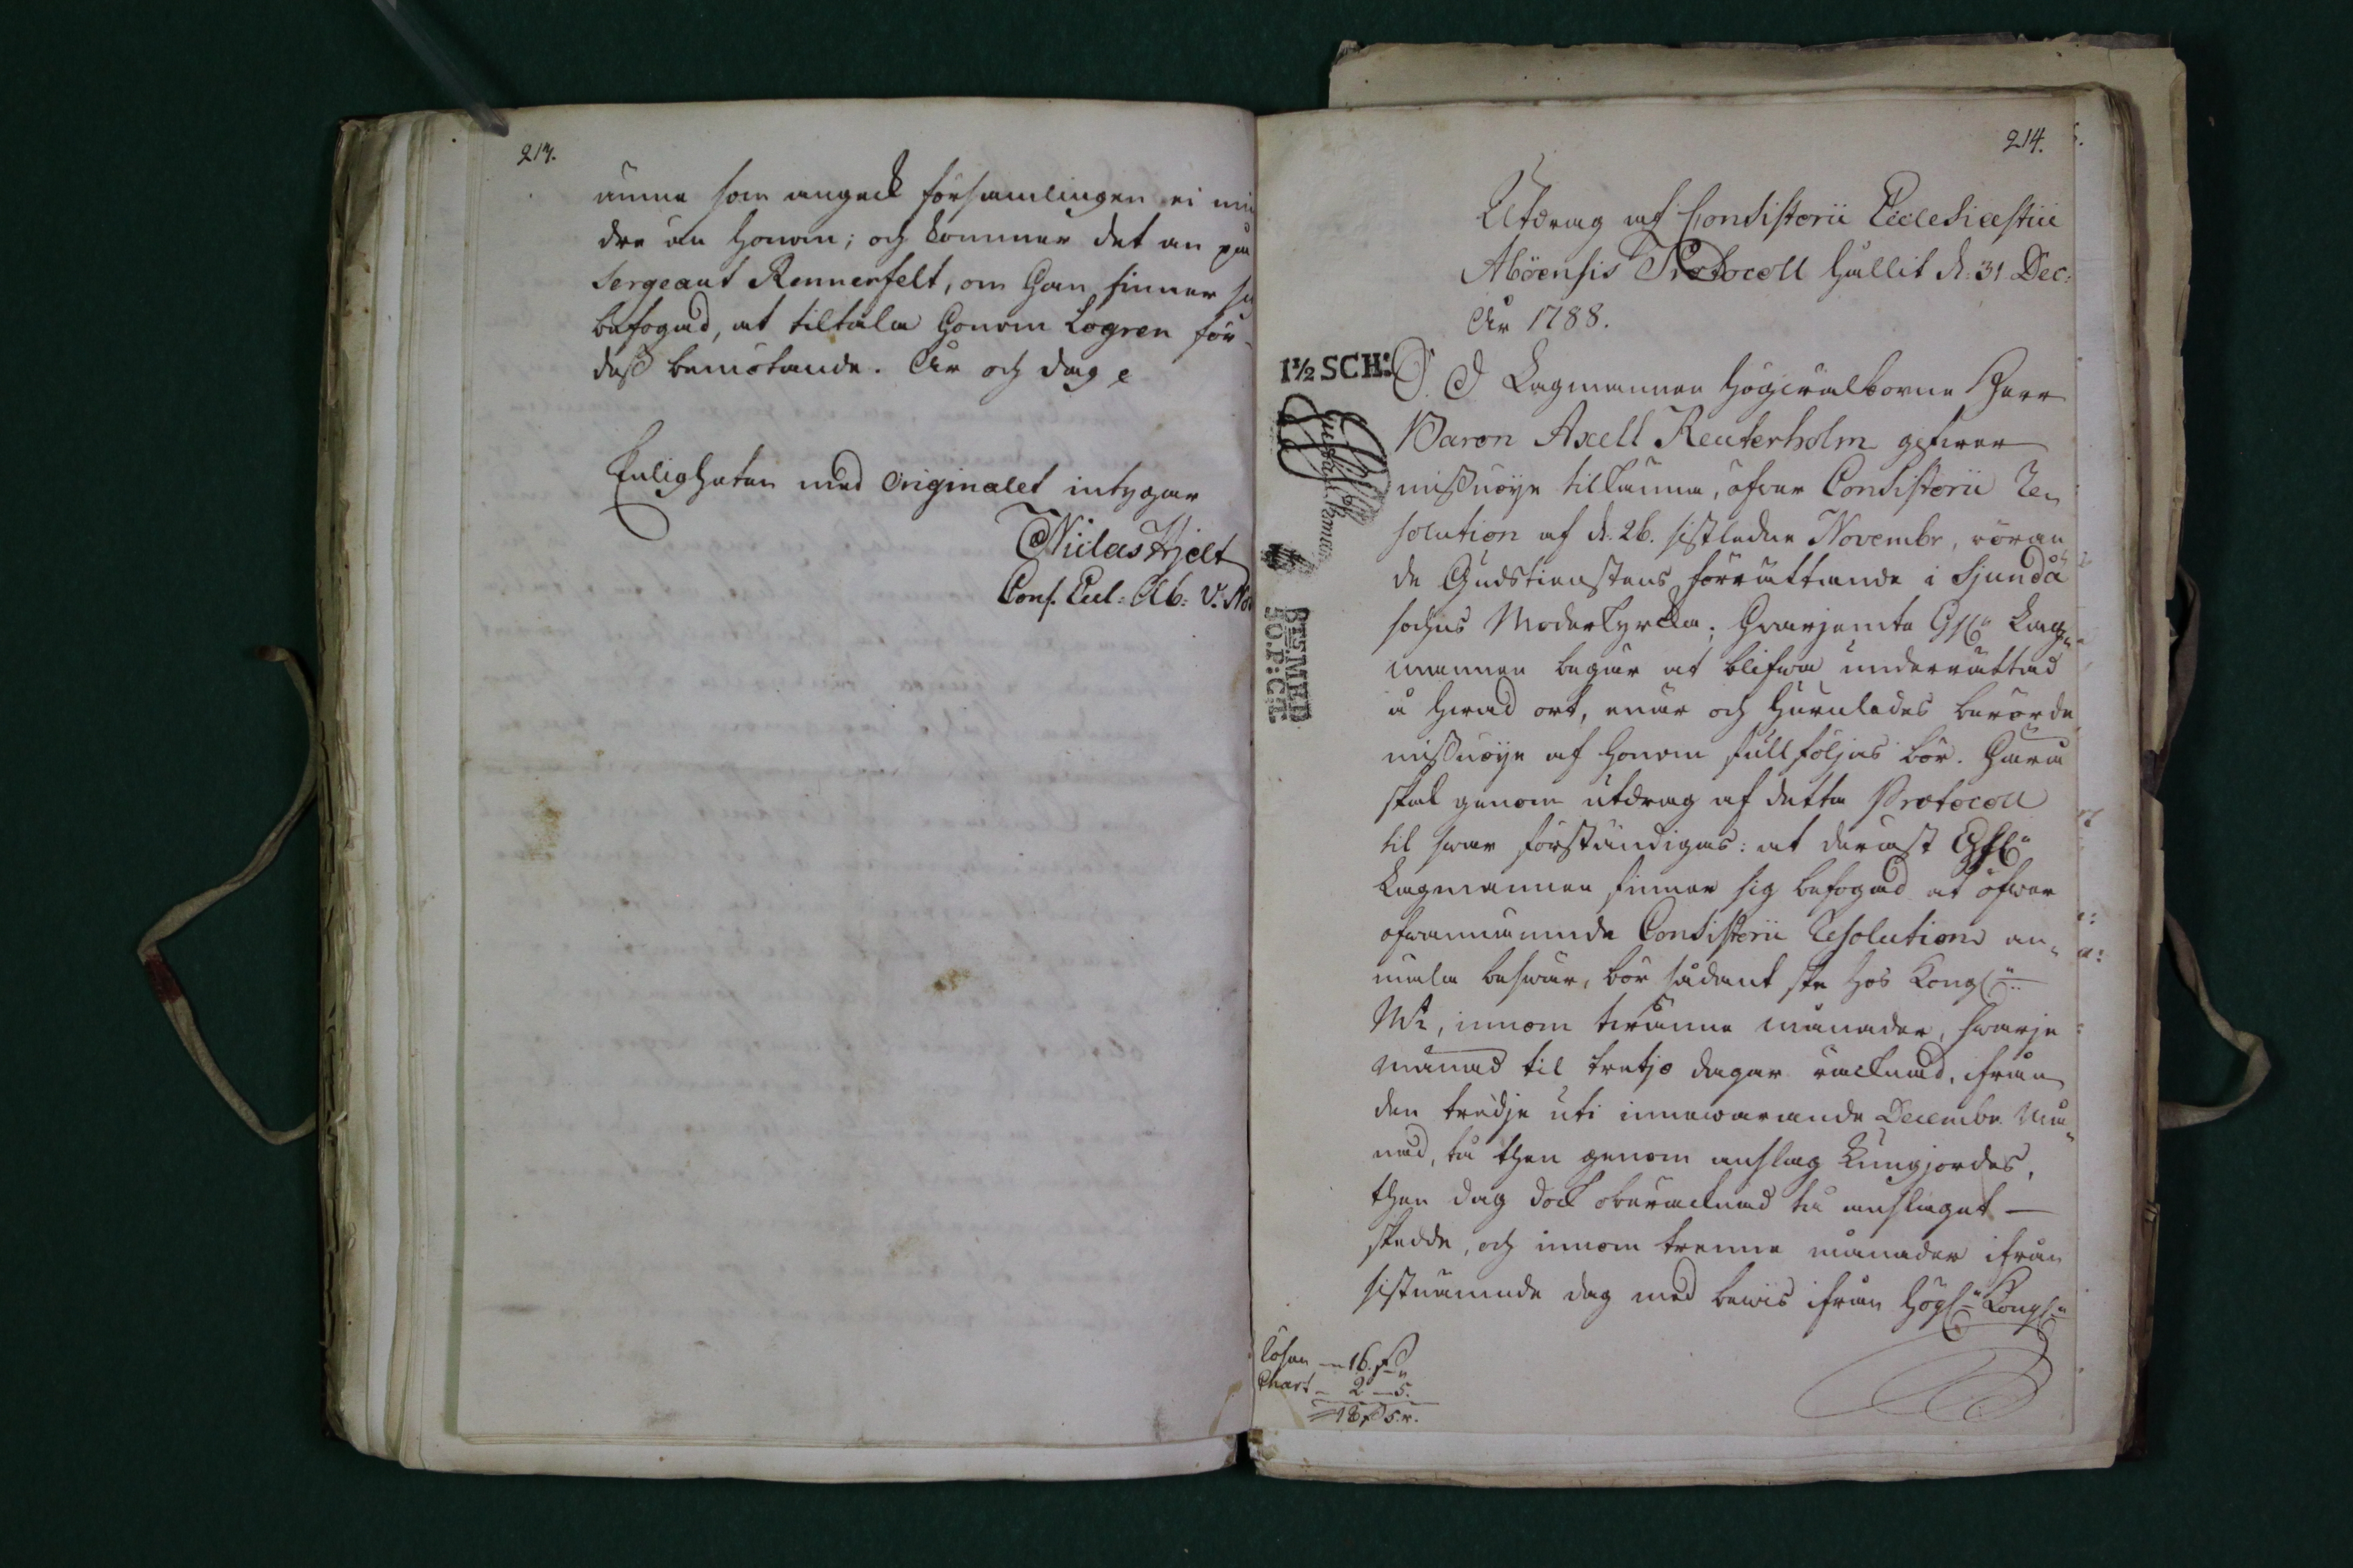 213.
ämne som angeck församlingen ei min
dre än honom; och kommer det an på
Sergeant Rennerfelt, om han finner sig
befogad, at tiltala honom Logren för
dess bemötande. År och dag
Enligheten med Originalet intygar
Niclas Hjelt
Cons. Eccl: Ab: V. Not
214.
Utdrag af Consistorii Ecclesiastici
Aboënsis Protocoll hållit d: 31 Dec:
År 1788.
1½ SCH:
S. D. Lagmannen Högvälborne Herr
Baron Axell Reuterholm gifwer
missnöje tilkänna, öfwer Consistorii Re
solution af d. 26. sistledne Novembr, röran
de Gudstienstens förrättande i Sjundå
sochns Moderkyrcka; hvarjemte Lag
mannen begär at blifwa underrättad
å hwad ort, enär och huruledes berörde
missnöje af honom fullföljas bör. Hwarå
skal genom utdrag af detta Protocoll
til swar förständigas: at derest
Lagmannen finner sig befogad at öfwer
ofwannämnde Consistorii Resolution an
mäla beswär, bör sådant ske hos Kongl:
Mt, innom twänne månader, hwarje
månad til tretjo dagar räcknad, ifrån
den tredje uti innewarande Decembr. Må
nad, tå then genom anslag kungjordes,
then dag dock oberäcknad tå anslaget —
skedde, och innom trenne månader ifrån
sistnämnde dag med bewis ifrån Högl: Kongl:
BTS.MED
SO.P:CH:
Lösen — 16. s
Chart — 2 — 5.
18 s 5 r.